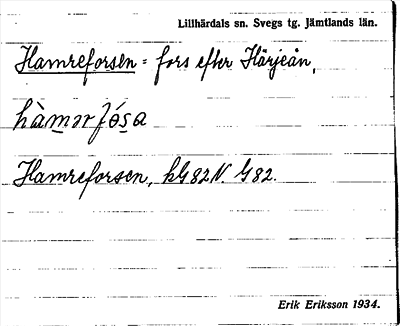 Lillhärdals sn. Svegs tg. Jämtlands län.
Hamreforsen = fors efter Härjeån,
hàmərfósa
Hamreforsen, kG82N. G82.
Erik Eriksson 1934.